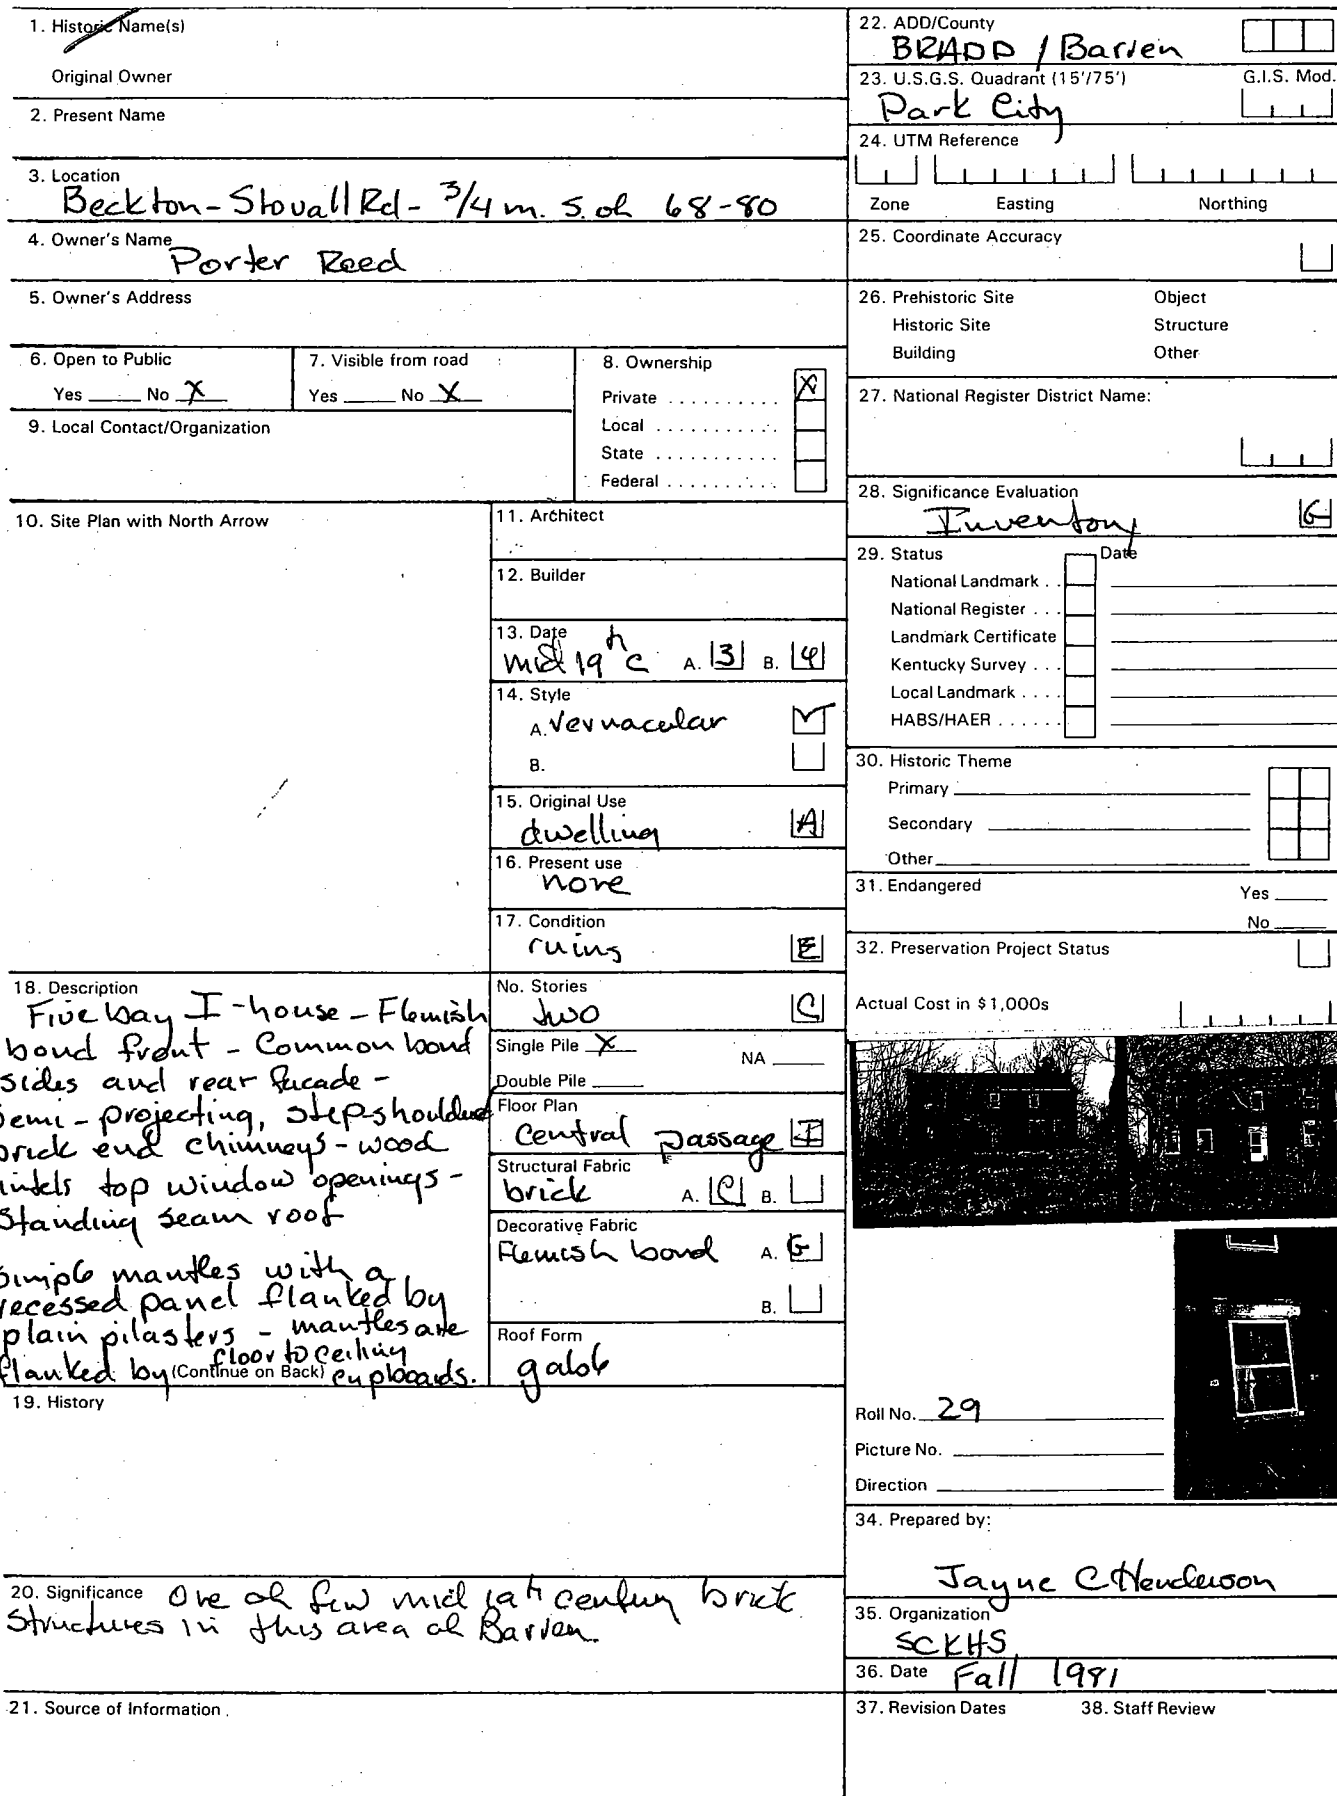 1. Historic Name(s)
Original Owner
2. Present Name
3. Location
Beckton-Stovall Rd - 3/4 m. S. of 68-80
4. Owner's Name
Porter Reed
5. Owner's Address
6. Open to Public
Yes ____ No X
7. Visible from road
Yes ____ No X
8. Ownership
Private .......... X
Local ..........
State ..........
Federal ..........
9. Local Contact/Organization
10. Site Plan with North Arrow
11. Architect
12. Builder
13. Date
mid 19th c A. 3 B. 4
14. Style
A. Vernacular
B.
15. Original Use
dwelling A
16. Present use
none
17. Condition
ruins E
18. Description
Five bay I-house - Flemish
bond front - Common bond
sides and rear facade -
semi-projecting, step-shouldered
brick end chimneys - wood
lintels top window openings -
Standing seam roof
Simple mantles with a
recessed panel flanked by
plain pilasters - mantles are
flanked by floor to ceiling cupboards.
(Continue on Back)
No. Stories
two C
Single Pile X NA ____
Double Pile ____
Floor Plan
Central passage I
Structural Fabric
brick A. C B.
Decorative Fabric
Flemish bond A. G
B.
Roof Form
gable
19. History
20. Significance One of few mid 19th century brick
structures in this area of Barren.
21. Source of Information
22. ADD/County
BRADD / Barren
23. U.S.G.S. Quadrant (15'/75') G.I.S. Mod.
Park City
24. UTM Reference
Zone Easting Northing
25. Coordinate Accuracy
26. Prehistoric Site Object
Historic Site Structure
Building Other
27. National Register District Name:
28. Significance Evaluation
Inventory G
29. Status Date
National Landmark . .
National Register . . .
Landmark Certificate
Kentucky Survey . . .
Local Landmark . . . .
HABS/HAER . . . . . .
30. Historic Theme
Primary
Secondary
Other
31. Endangered Yes ____
No ____
32. Preservation Project Status
Actual Cost in $1,000s
Roll No. 29
Picture No.
Direction
34. Prepared by:
Jayne C Henderson
35. Organization
SCKHS
36. Date Fall 1981
37. Revision Dates 38. Staff Review